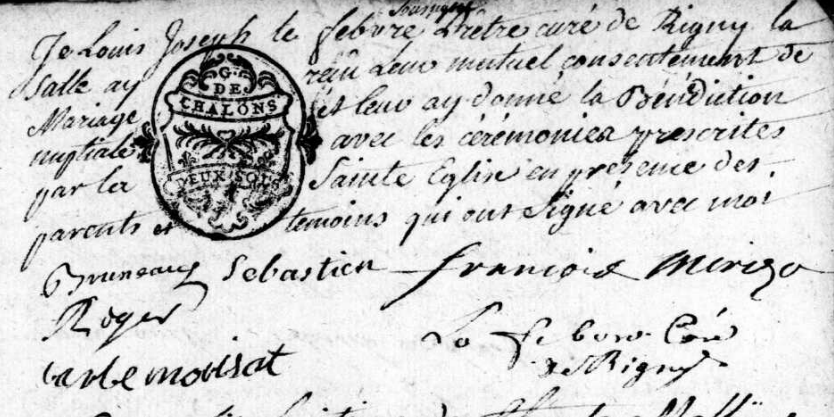 soussigné
Je Louis Joseph le febvre Prêtre curé de Rigny la
Salle ay reçû leur mutuel consentement de
Mariage et leur ay donné la Bénédiction
nuptiale avec les cérémonies prescrites
par la Sainte Eglise en presence des
parents et temoins qui ont Signé avec moi
G. DE
CHALONS
DEUX SOLS
Bruneaux Sebastien françois
Roger
Le febvre Curé
de Rigny